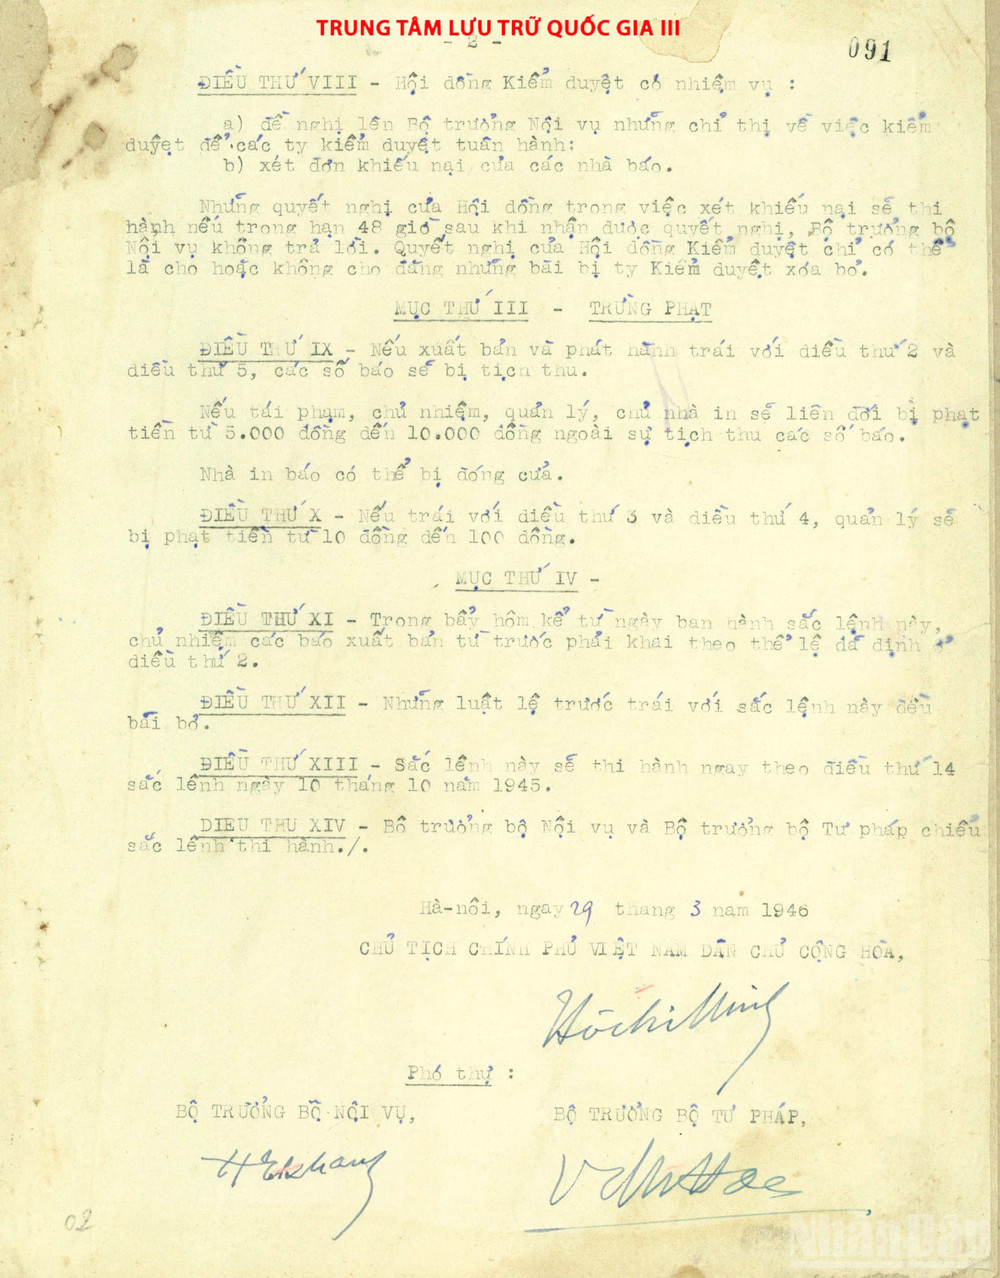 TRUNG TÂM LƯU TRỮ QUỐC GIA III
- 2 -
091
ĐIỀU THỨ VIII - Hội đồng Kiểm duyệt có nhiệm vụ :
a) đề nghị lên Bộ trưởng Nội vụ những chỉ thị về việc kiểm
duyệt để các ty kiểm duyệt tuân hành:
b) xét đơn khiếu nại của các nhà báo.
Những quyết nghị của Hội đồng trong việc xét khiếu nại sẽ thi
hành nếu trong hạn 48 giờ sau khi nhận được quyết nghị, Bộ trưởng bộ
Nội vụ không trả lời. Quyết nghị của Hội đồng Kiểm duyệt chỉ có thể
là cho hoặc không cho đăng những bài bị ty Kiểm duyệt xóa bỏ.
MỤC THỨ III - TRỪNG PHẠT
ĐIỀU THỨ IX - Nếu xuất bản và phát hành trái với điều thứ 2 và
điều thứ 5, các số báo sẽ bị tịch thu.
Nếu tái phạm, chủ nhiệm, quản lý, chủ nhà in sẽ liên đới bị phạt
tiền từ 5.000 đồng đến 10.000 đồng ngoài sự tịch thu các số báo.
Nhà in báo có thể bị đóng cửa.
ĐIỀU THỨ X - Nếu trái với điều thứ 3 và điều thứ 4, quản lý sẽ
bị phạt tiền từ 10 đồng đến 100 đồng.
MỤC THỨ IV -
ĐIỀU THỨ XI - Trong bẩy hôm kể từ ngày ban hành sắc lệnh này,
chủ nhiệm các báo xuất bản từ trước phải khai theo thể lệ đã định ở
điều thứ 2.
ĐIỀU THỨ XII - Những luật lệ trước trái với sắc lệnh này đều
bãi bỏ.
ĐIỀU THỨ XIII - Sắc lệnh này sẽ thi hành ngay theo điều thứ 14
sắc lệnh ngày 10 tháng 10 năm 1945.
DIEU THU XIV - Bô trưởng bộ Nội vụ và Bộ trưởng bộ Tư pháp chiểu
sắc lệnh thi hành./.
Hà-nôi, ngay 29 thang 3 nam 1946
CHỦ TỊCH CHÍNH PHỦ VIỆT NAM DÂN CHỦ CỘNG HÒA,
Hồ Chí Minh
Phó thự :
BỘ TRƯỞNG BỘ NỘI VỤ,
BỘ TRƯỞNG BỘ TƯ PHÁP,
02
Nhân Dân